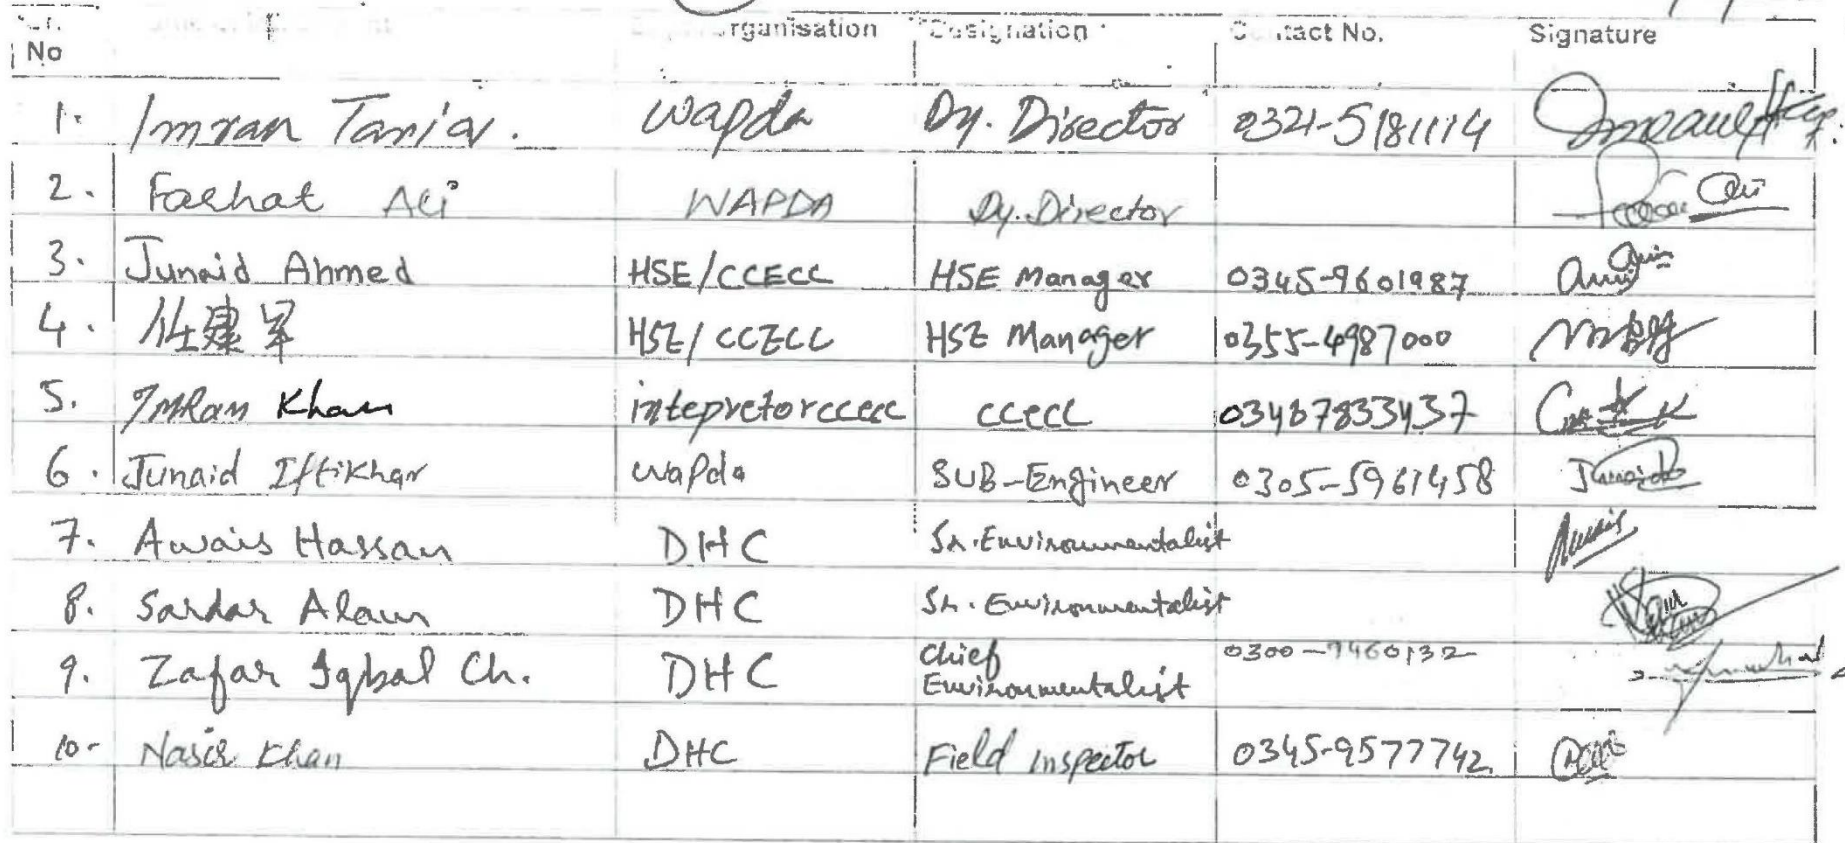 No
rganisation Designation Contact No. Signature
1. Imran Tariq. wapda Dy. Director 0321-5181114
2. Farhat Ali WAPDA Dy. Director
3. Junaid Ahmed HSE/CCECC HSE Manager 0345-9601987
4. 任建军 HSE/CCECC HSE Manager 0355-4987000
5. Imran Khan intepretor ccecc ccecc 03467833437
6. Junaid Iftikhar wapda SUB-Engineer 0305-5961458 Junaid
7. Awais Hassan DHC Sr. Environmentalist Awais
8. Sardar Alam DHC Sr. Environmentalist
9. Zafar Iqbal Ch. DHC Chief Environmentalist 0300-9460132
10- Nasir Khan DHC Field Inspector 0345-9577742